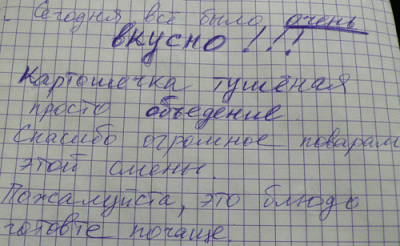 Сегодня всё было очень
вкусно!!!
Картошечка тушёная
просто объедение.
Спасибо огромное поварам
этой смены.
Пожалуйста, это блюдо
готовте почаще.